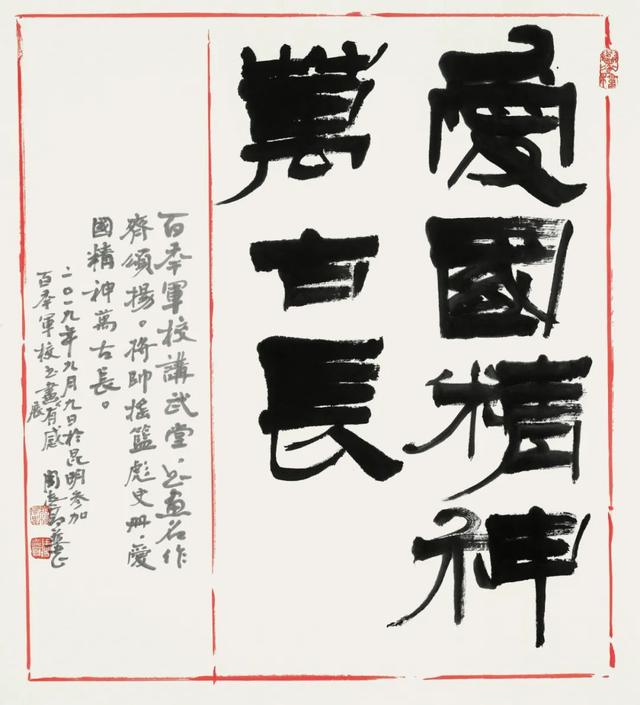 愛國精神
萬古長
百秊軍校講武堂.书画名作
齊頌揚。將帥摇籃彪史册.愛
國精神萬古長。
二〇一九年九月九日於昆明参加
百秊軍校书畫展有感